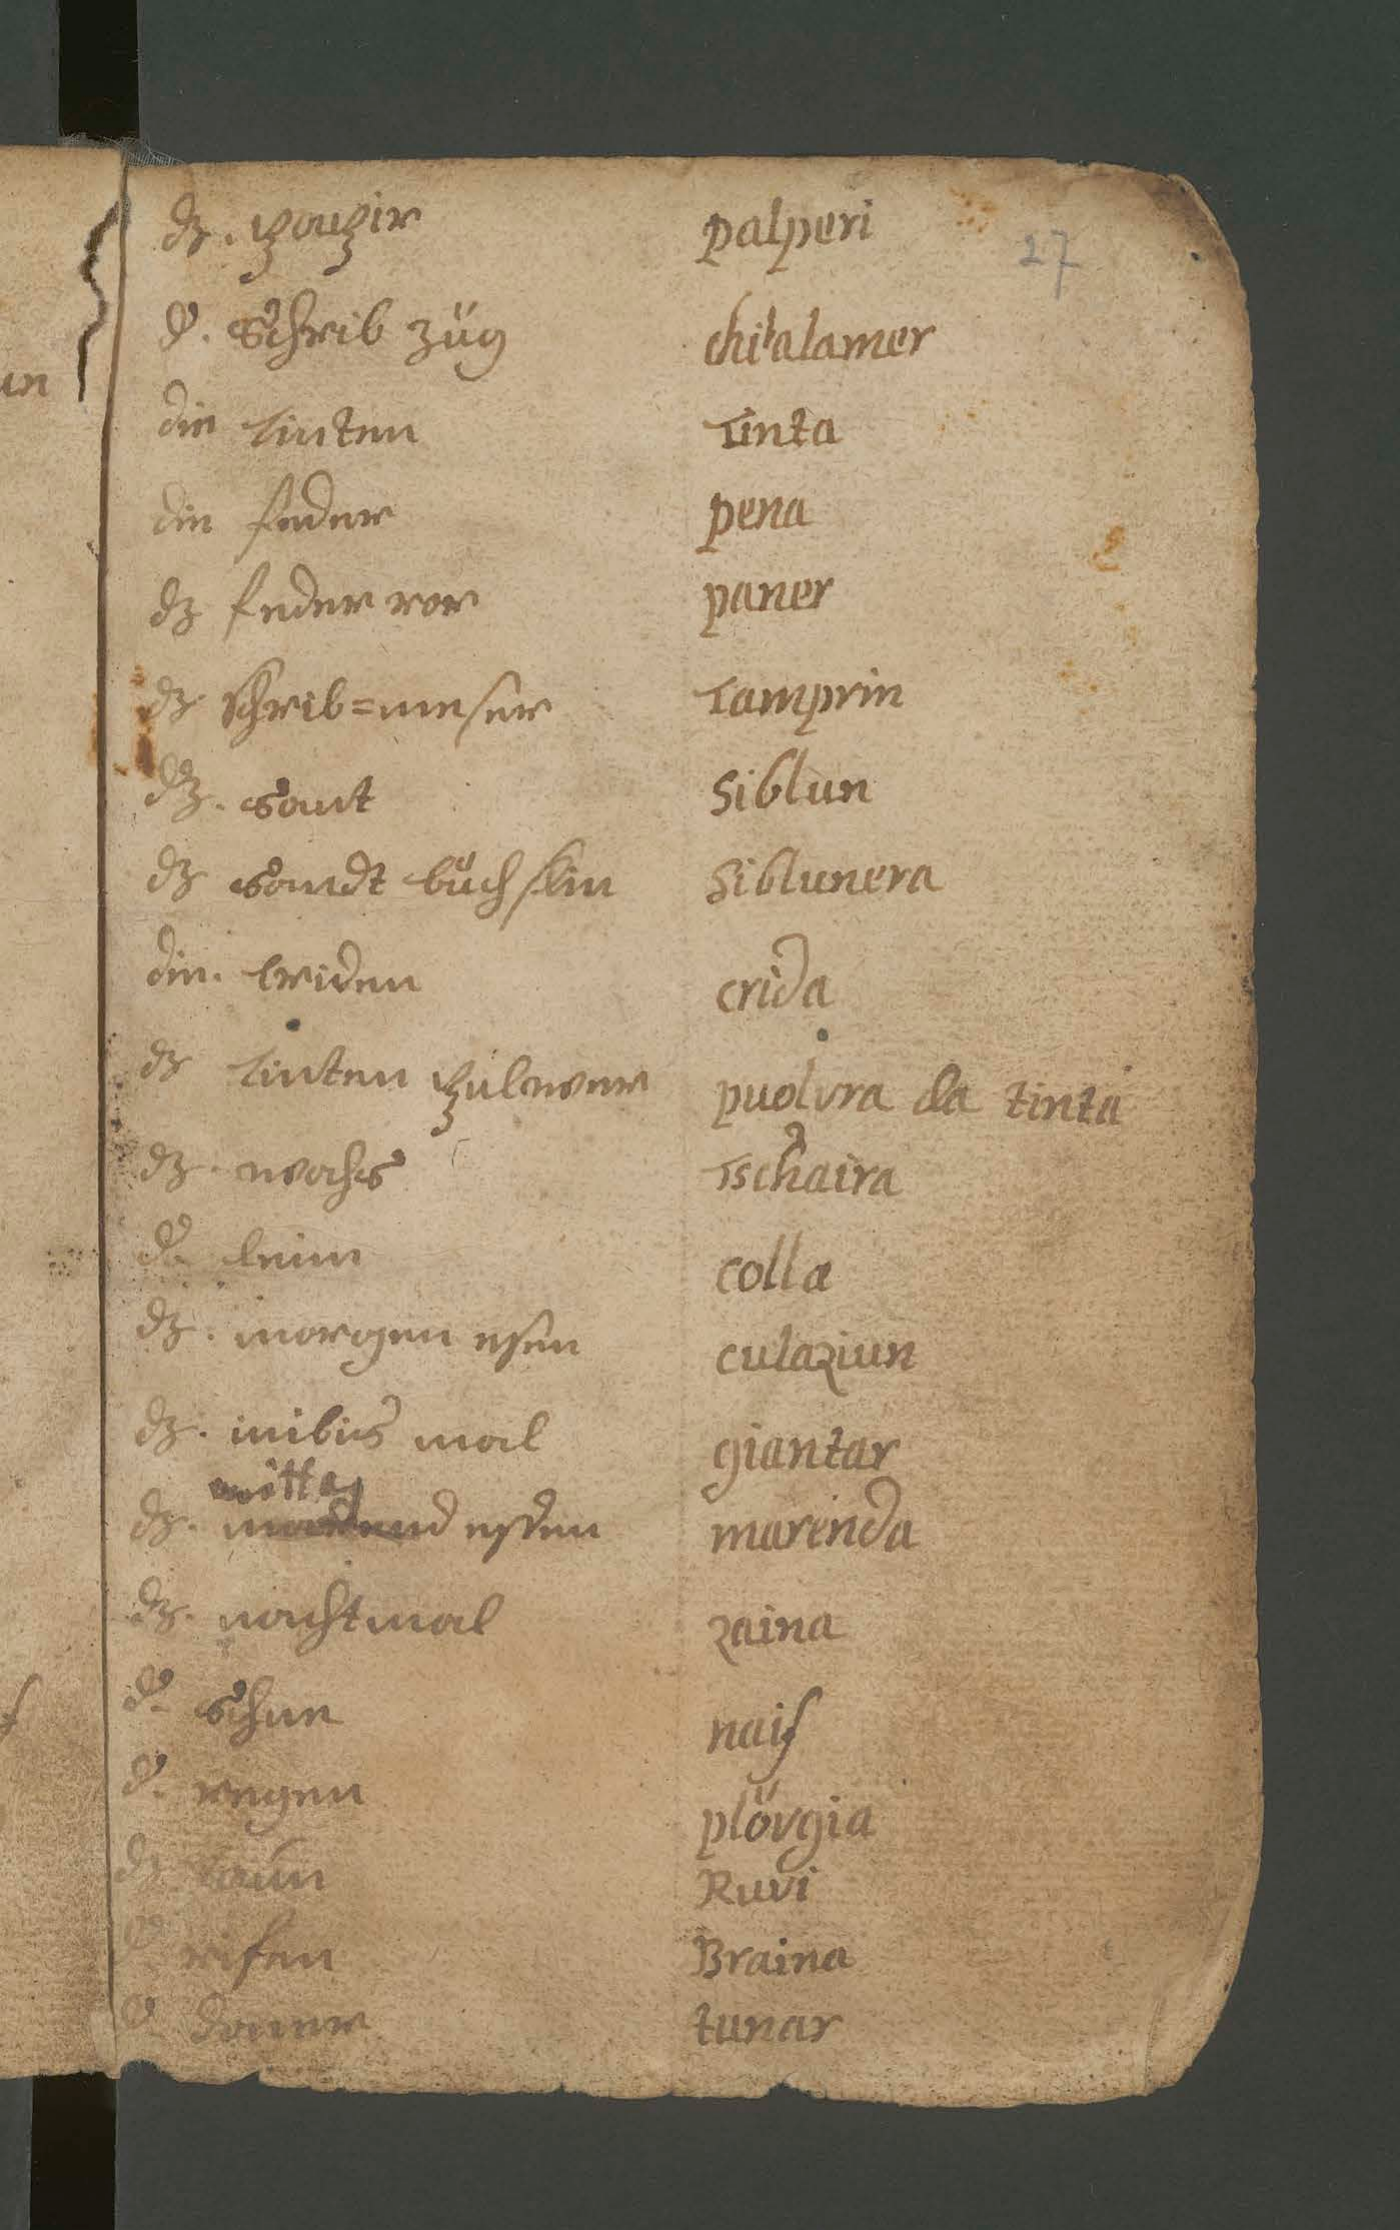 27
dz. papir palperi
d. Schrib züg chialamer
die tinten Tinta
die feder pena
dz feder ror paner
dz schrib=meser Tamprin
dz. sant Siblun
dz sandt büchslin Siblunera
die. kriden crida
dz tinten pulwer puolvra da tinta
dz. wachs Tschaira
d. leim colla
dz. morgen esen culaziun
dz. imbis mal giantar
mittag
dz. marend essen marenda
dz. nachtmal zaina
d. schne naif
d. regen plövgia
dz Ruvi
d rifen Braina
d. doner tunar